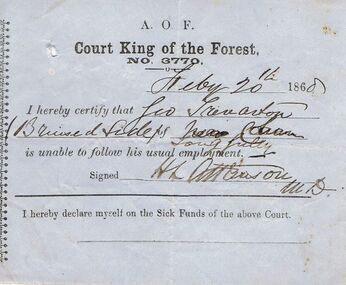 A. O. F.
Court King of the Forest,
NO. 3770.
Feby 20th 1868
I hereby certify that Geo
is unable to follow his usual employment.
Signed Atkinson
M.D.
I hereby declare myself on the Sick Funds of the above Court.